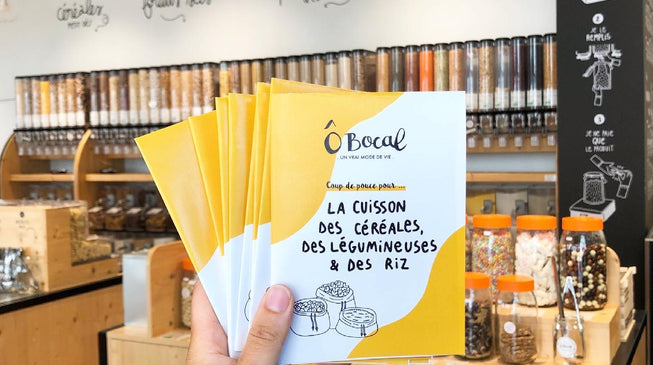 céréales
Ô Bocal
UN VRAI MODE DE VIE...
Coup de pouce pour ...
LA CUISSON
DES CÉRÉALES,
DES LÉGUMINEUSES
& DES RIZ
2
JE LE
REMPLIS
3
JE NE PAIE
QUE
LE PRODUIT